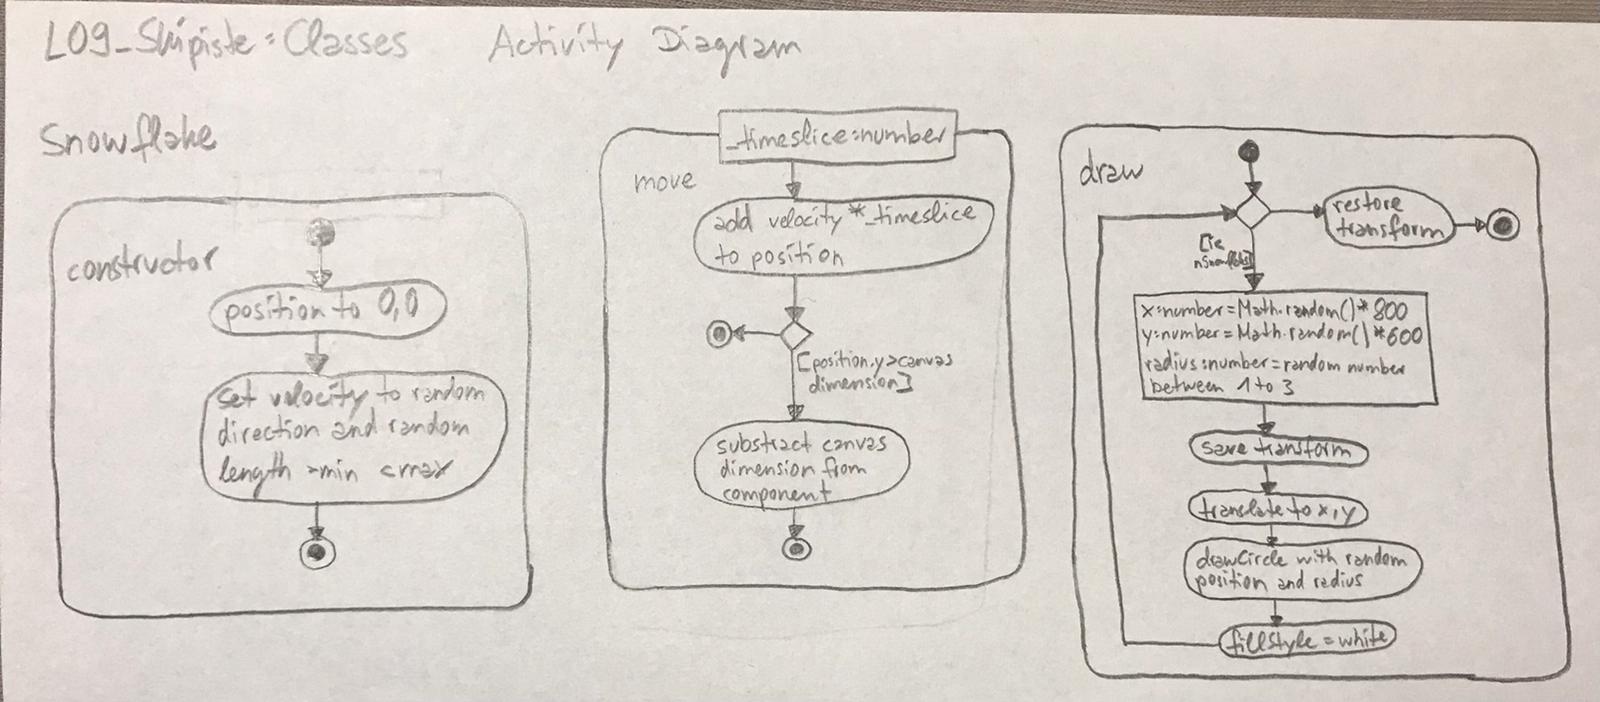 L09_Skipiste: Classes Activity Diagram
Snowflake
constructor
position to 0,0
set velocity to random
direction and random
length >min <max
_timeslice:number
move
add velocity *_timeslice
to position
[position.y>canvas
dimension]
substract canvas
dimension from
component
draw
restore
transform
x:number=Math.random()*800
y:number=Math.random()*600
radius:number=random number
between 1 to 3
save transform
translate to x,y
drawCircle with random
position and radius
fillStyle=white